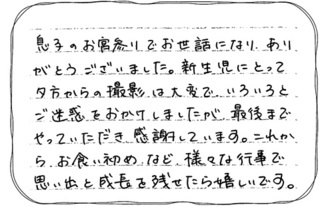 息子のお宮参りでお世話になり、あり
がとうございました。新生児にとって
夕方からの撮影は大変で、いろいろと
ご迷惑をおかけしましたが、最後まで
やっていただき、感謝しています。これか
ら、お食い初めなど、様々な行事で
思い出と成長を残せたら嬉しいです。